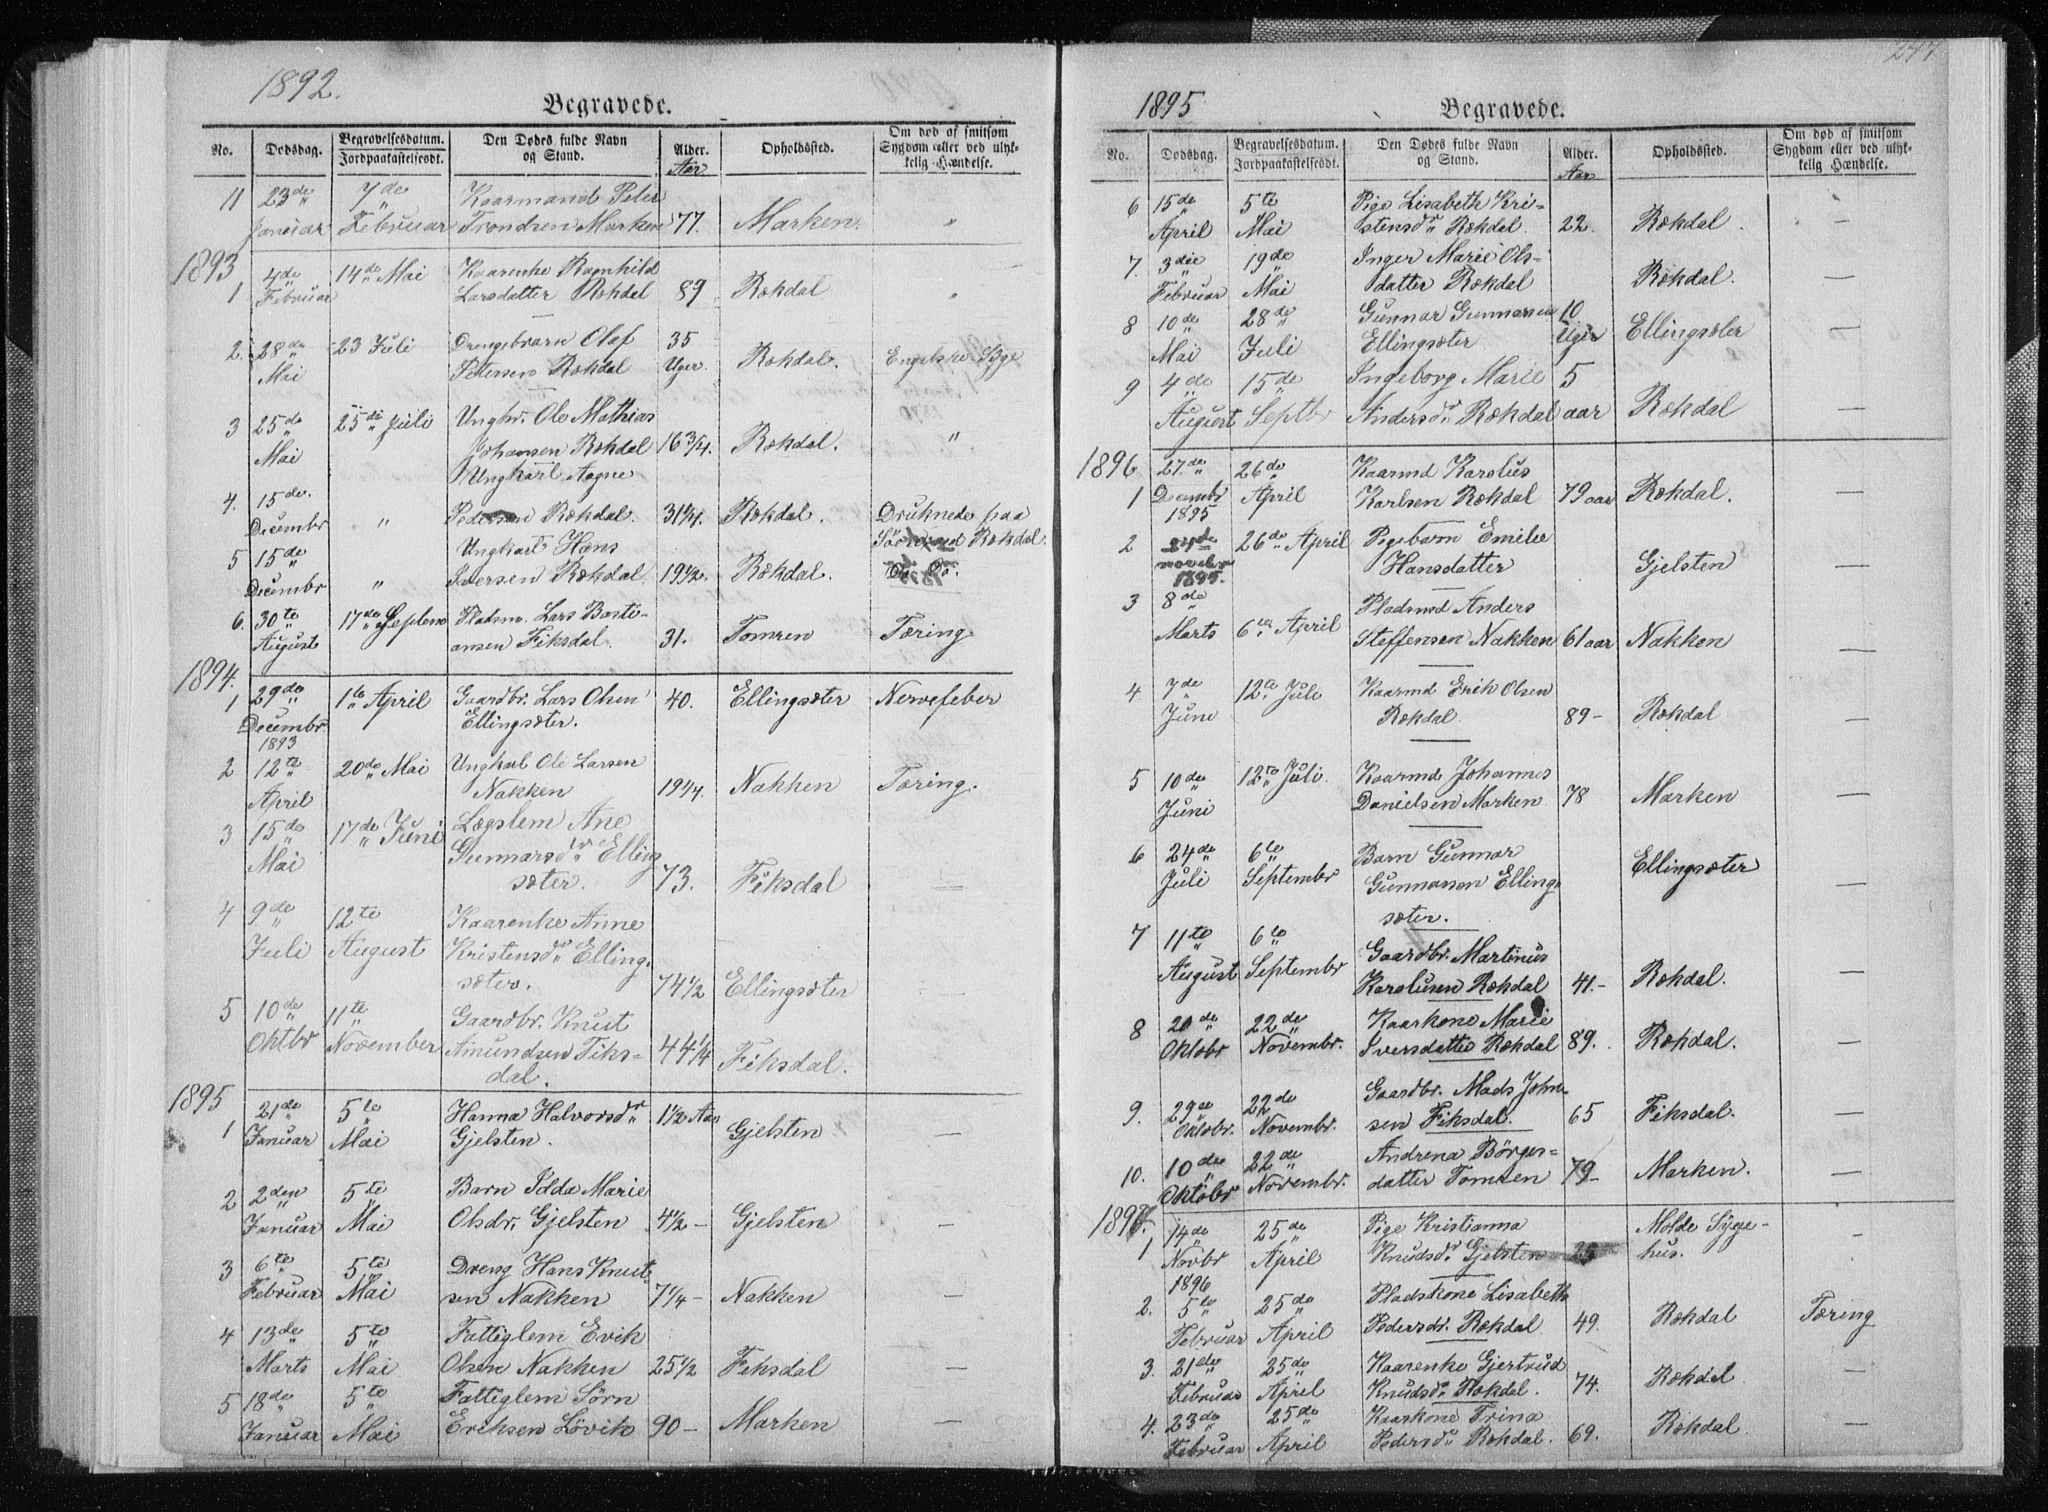 1892.
Begravede.
No. Dødsdag. Begravelsesdatum. Jordpaakastelsesdt. Den Dødes fulde Navn og Stand. Alder. Aar Opholdssted. Om død af smitsom Sygdom eller ved ulykkelig Hændelse.
11 23de 7de Kaarmand Peter
Januar Februar Trondsen Marken 77. Marken. "
1893
1 4de 14de Mai Kaarenke Ramhild
Februar Larsdatter Rekdal 89 Rekdal "
2. 28de 23 Juli Drengebarn Olaf 35
Mai Petersen Rekdal Uger. Rekdal. Engelske Syge
3 25de 25de Juli Ungkr. Ole Mathias
Mai Johansen Rekdal 16 3/4. Rekdal. "
Ungkarl Aagne
4. 15de
Decembr " Pedersen Rekdal. 31 1/4. Rekdal. Druknede paa
Ungkarl Hans Rekdal.
5 15de
Decembr " Iversen Rekdal 19 1/2. Rekdal. Do Do.
6. 30te 17de Septem Pladsm. Lars Basti-
August ansen Fiksdal. 31. Tomren Tæring.
1894.
1 29de 1te April Gaardbr. Lars Olsen 40. Ellingsæter Nervefeber
Decembr Ellingsæter.
1893
2 12te 20de Mai Ungkarl Ole Larsen
April Nakken 19 1/4 Nakken Tæring.
3 15de 17de Juni Lægslem Ane
Mai Gunnarsdr Elling
sæter. 73. Fiksdal —
4 9de 12te Kaarenke Anne
Juli August Kristensdr Elling.
sæter. 74 1/2 Ellingsæter —
5 10de 11te Gaardbr. Knut
Oktbr November Amundsen Fiks- 44 1/4 Fiksdal.
dal.
1895
1 21de 5te Hanna Halvorsdr 1 1/2 Aar
Januar Mai Gjelsten. Gjelsten —
2 2den 5te Barn Idda Marie
Januar Mai Olsdr. Gjelsten 4 1/2 — Gjelsten —
3 6te 5te Dreng Hans Knut-
Februar Mai sen Nakken 7 1/4 — Nakken —
4 13de 5te Fattiglem Erik
Marts Mai Olsen Nakken 25 1/2 Fiksdal —
5 18de 5te Fattiglem Sörn
Januar Mai Eriksen Lövik 90 — Marken —
247
1895
Begravede.
No. Dødsdag. Begravelsesdatum. Jordpaakastelsesdt. Den Dødes fulde Navn og Stand. Alder. Aar Opholdssted. Om død af smitsom Sygdom eller ved ulykkelig Hændelse.
6 15de 5te Pige Lisabeth Kri-
April Mai stensdr Rekdal 22. Rekdal. —
7. 3die 19de Inger Marie Ols-
Februar Mai datter Rekdal Rekdal. —
8 10de 28de Gunnar Gunnarsen 10
Mai Juli Ellingsæter Uger Ellingsæter —
9 4de 15de Ingeborg Marie 5
August Septbr Andersdr Rekdal aar Rekdal —
1896
27de 26de Kaarmd Karolus
1 Decembr April Karlsen Rekdal 79 aar Rekdal. —
1895
2 26de April Pigebarn Emilie
novebr Hansdatter Gjelsten —
1895.
3 8de Pladsmd Anders
Marts 6te April Steffensen Nakken 61 aar Nakken —
4 7de 12te Juli Kaarmd Erik Olsen
Juni Rekdal 89 - Rekdal —
5 10de 12te Juli. Kaarmd Johannes
Juni Danielsen Marken 78 Marken —
6 24de 6te Barn Gunnar Ellingsæter —
Juli Septembr Gunnarsen Elling
sæter.
7 11te 6te Gaardbr. Martinus
August Septembr Karolusen Rekdal 41. - Rekdal. —
8 20de 22de Kaarkone Marie
Oktobr Novembr. Iversdatter Rekdal 89. Rekdal. —
9. 29de 22de Gaardbr. Mads John
Oktobr. Novembr. sen Fiksdal. 65 Fiksdal. —
10. 10de 22de Andrena Börges-
Oktobr Novembr. datter Tomren 79 - Marken. —
1897.
1 14de 25de Pige Kristianna Molde Syge-
Novbr April Knudsdr Gjelsten hus. -
1896
2. 5te 25de Pladskone Lisabeth
Februar April Pedersdr. Rekdal 49. Rekdal Tæring
3. 21de 25de Kaarenke Gjertrud
Februar April Knudsdr Rekdal. 74. Rekdal —
4. 23de 25de Kaarkone Trina
Februar April Pedersdr Rekdal. 69. Rekdal —